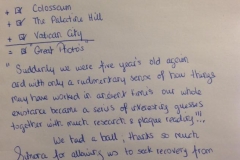 + ☑ Colosseum
+ ☑ The Palatine Hill
+ ☑ Vatican City
+ ☑ Great Photos
"Suddenly we were five year's old again,
and with only a rudimentary sense of how things
may have worked in ancient times our whole
existence became a series of guesses
together with much research & plaque reading"!!!
We had a ball, thanks so much
for allowing us to seek recovery from